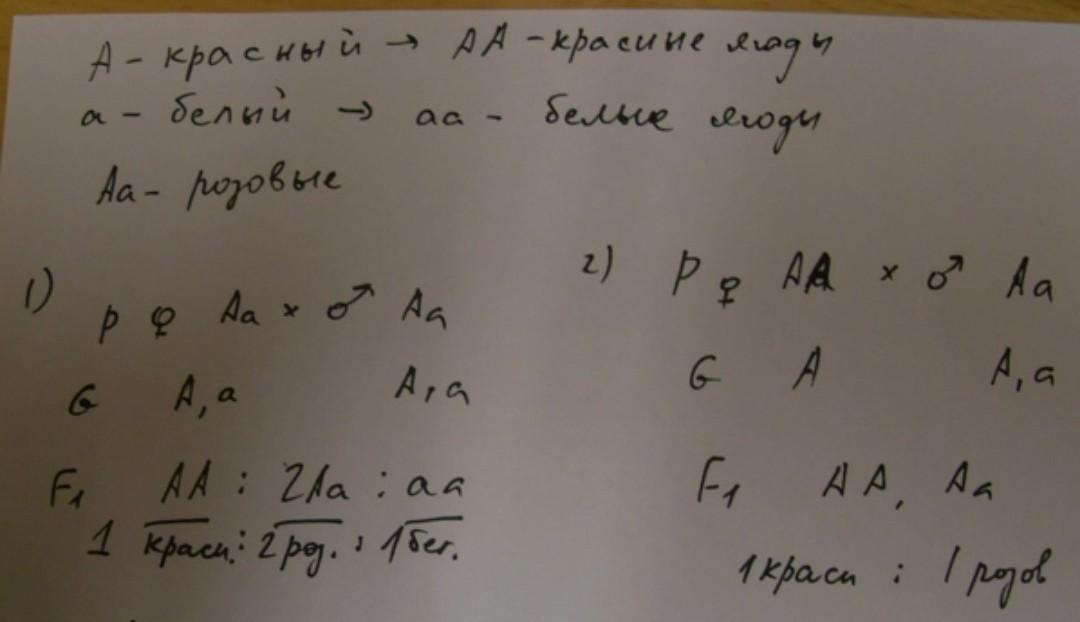 А - красный → АА - красные ягоды
а - белый → аа - белые ягоды
Аа - розовые
1)
Р ♀ Аа × ♂ Аа
G А, а А, а
F1 АА : 2Аа : аа
1 красн. : 2 роз. : 1 бел.
2) Р ♀ АА × ♂ Аа
G А А, а
F1 АА, Аа
1 красн : 1 розов